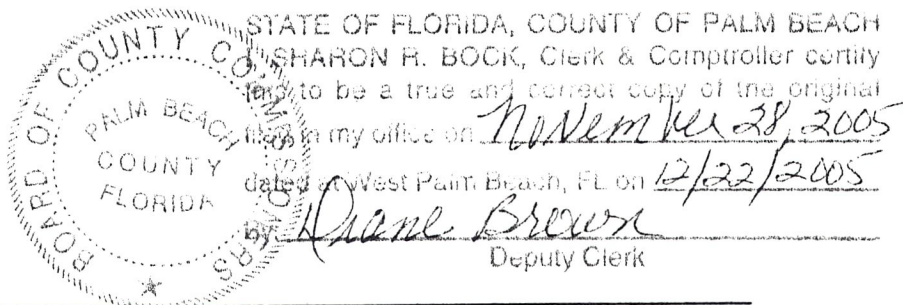 BOARD OF COUNTY COMMISSIONERS
PALM BEACH
COUNTY
FLORIDA
STATE OF FLORIDA, COUNTY OF PALM BEACH
I, SHARON R. BOCK, Clerk & Comptroller certify
this to be a true and correct copy of the original
filed in my office on November 28, 2005
dated at West Palm Beach, FL on 12/22/2005
by: Diane Brown
Deputy Clerk